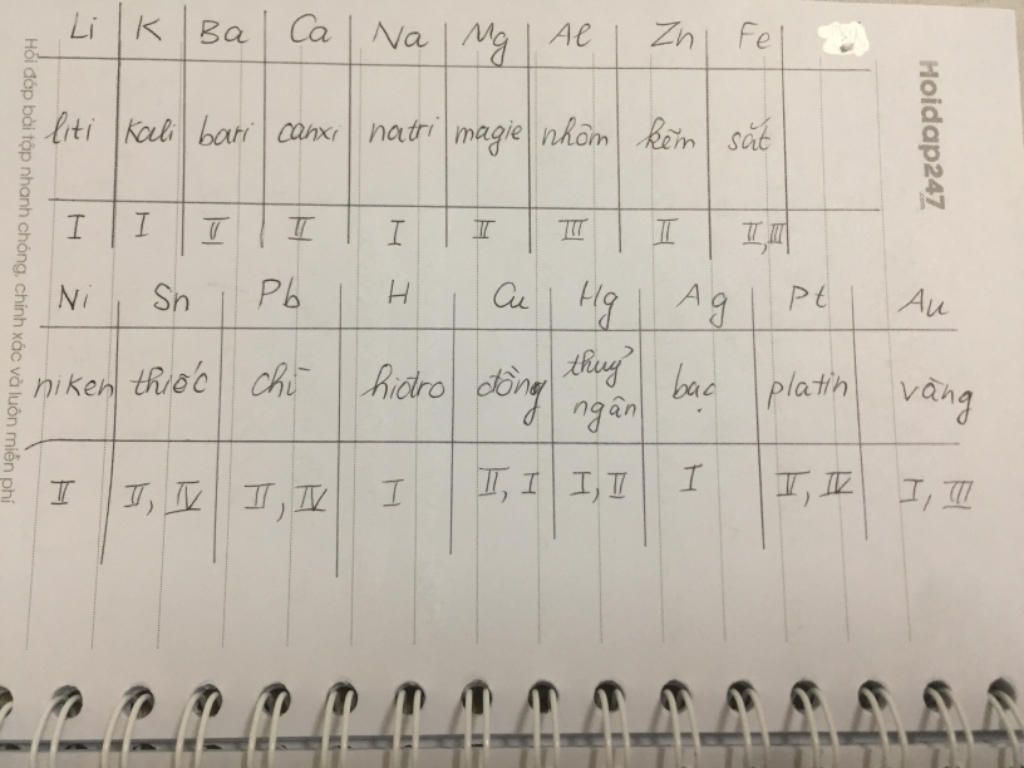 Li K Ba Ca Na Mg Al Zn Fe
liti Kali bari canxi natri magie nhôm kẽm sắt
I I II II I II III II II, III
Ni Sn Pb H Cu Hg Ag Pt Au
niken thiếc chì hiđro đồng thuỷ ngân bạc platin vàng
II II, IV II, IV I II, I I, II I II, IV I, III
Hoidap247
Hỏi đáp bài tập nhanh chóng, chính xác và luôn miễn phí